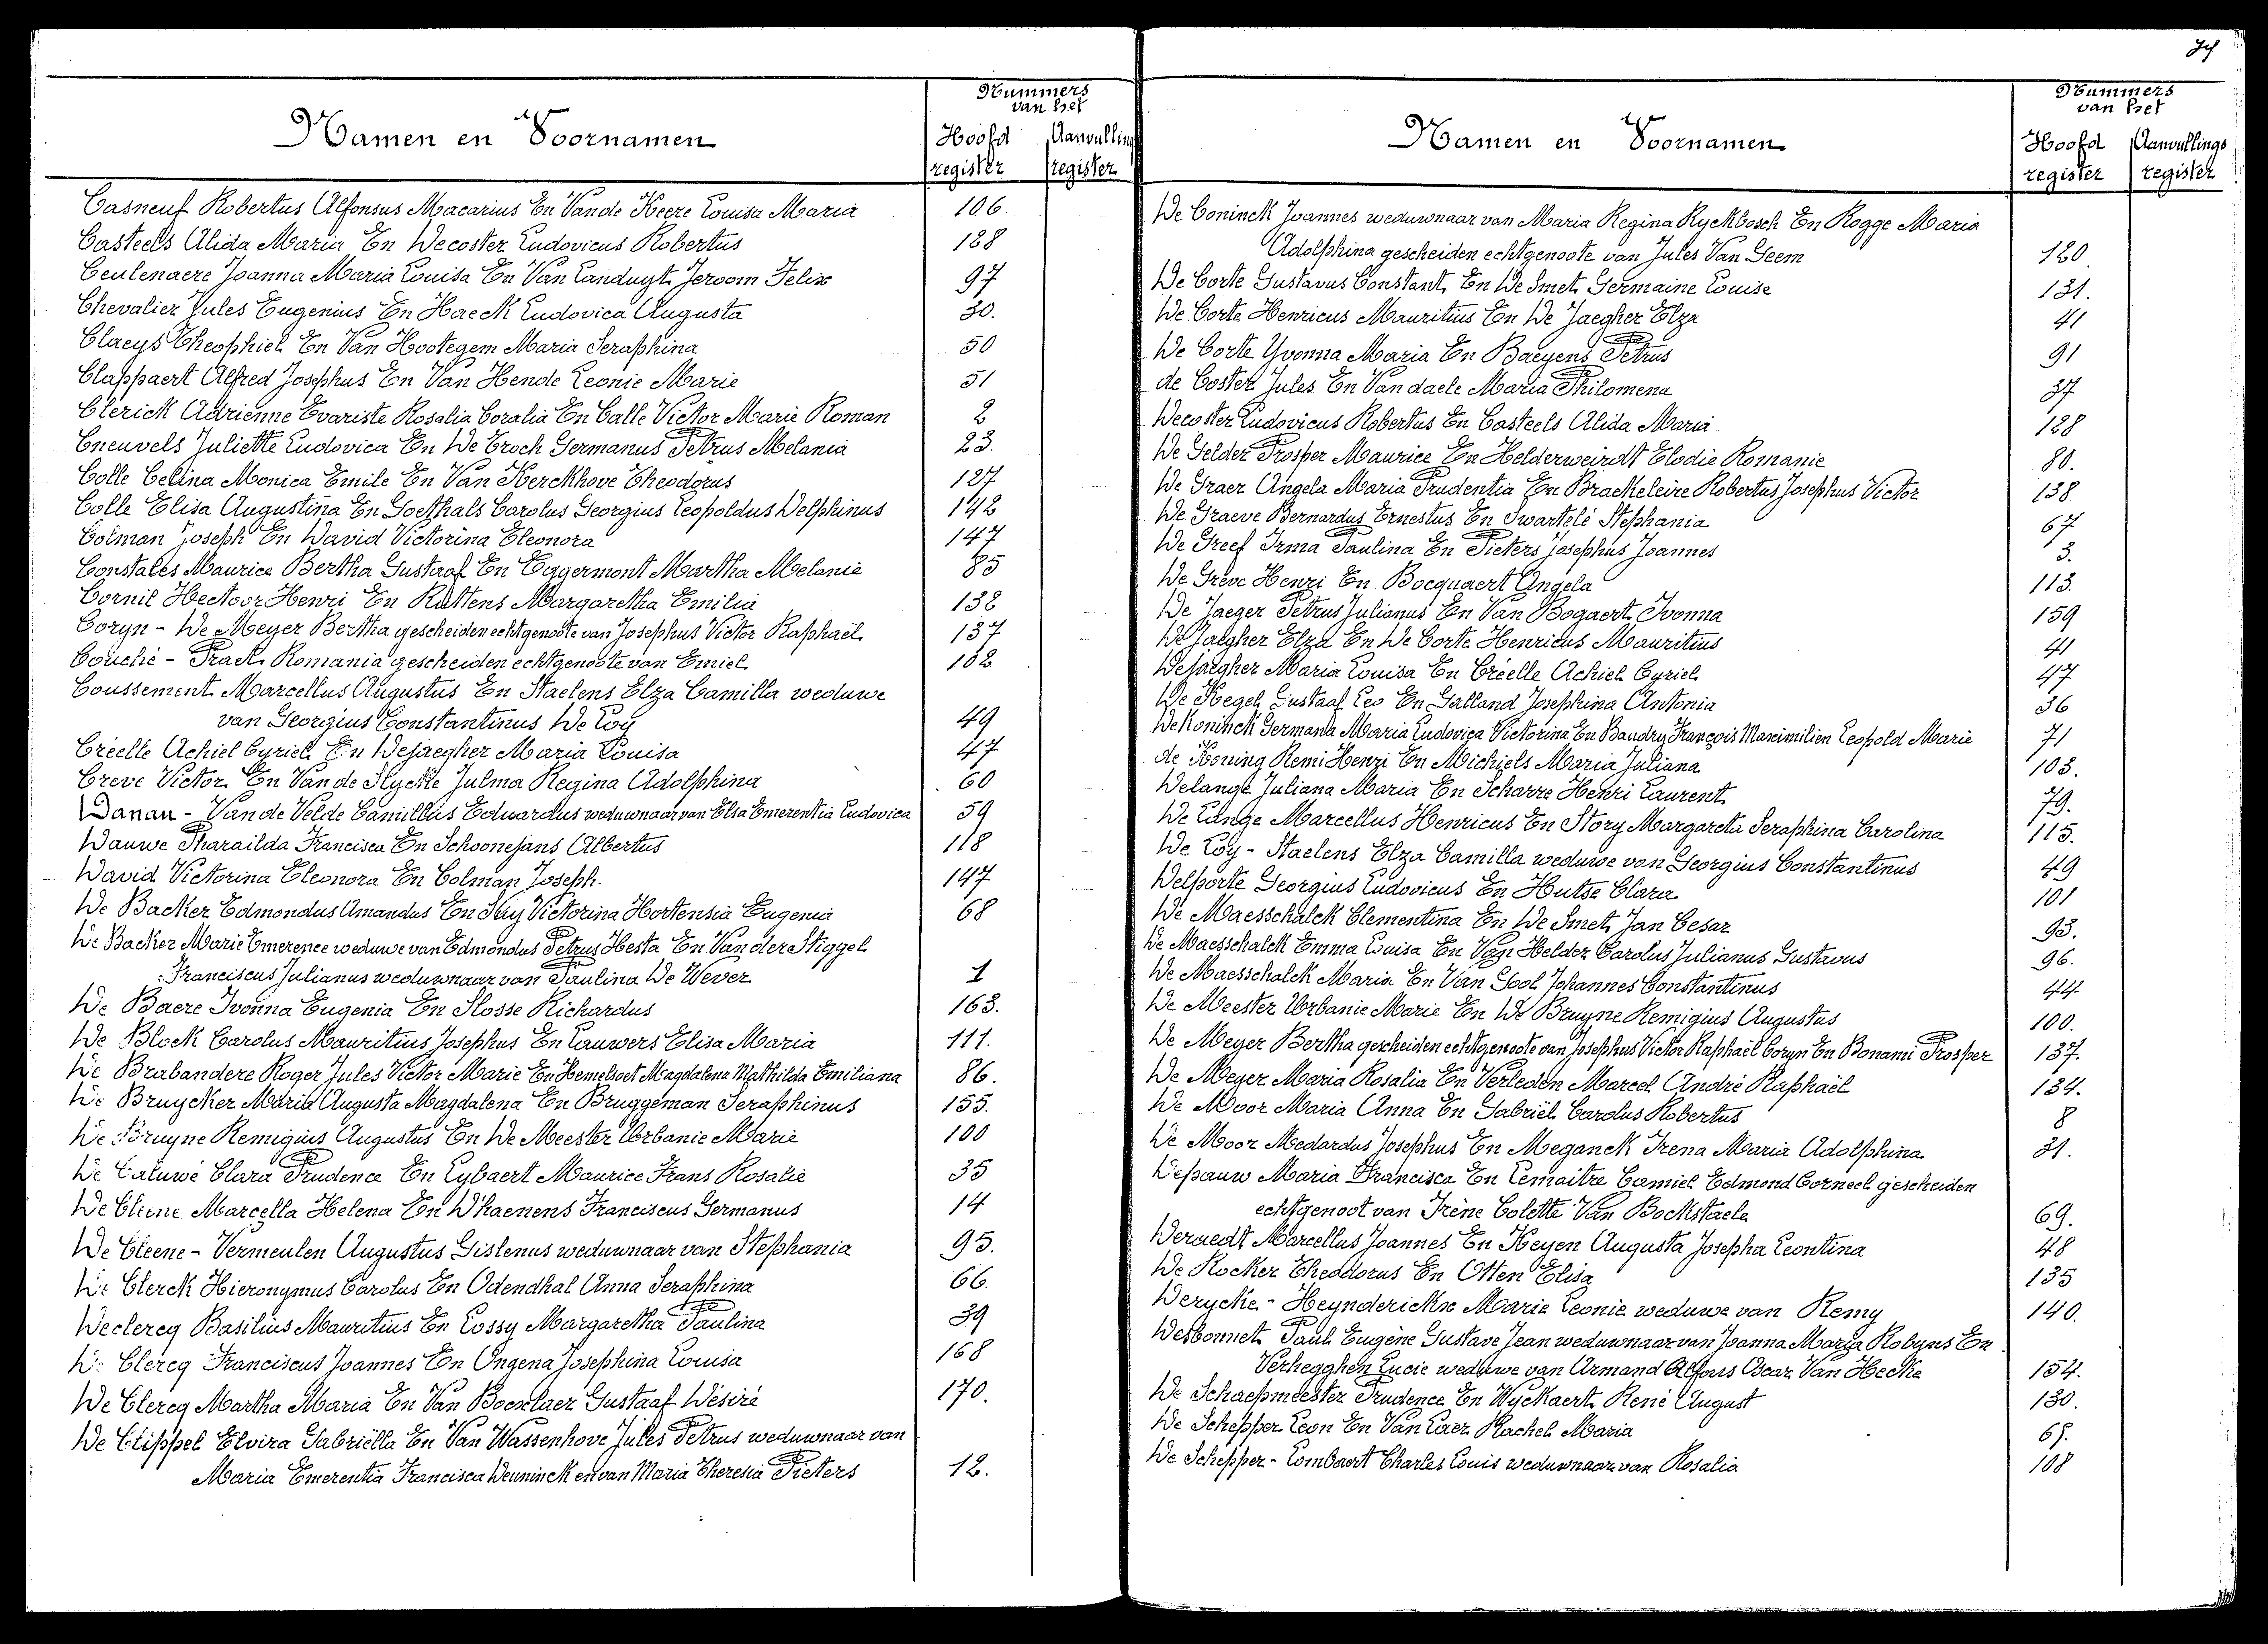 Namen en Voornamen
Nummers
van het
Hoofd register
Aanvullings register
Casneuf Robertus Alfonsus Macarius En Van de Keere Louisa Maria 106.
Casteels Alida Maria En Decoster Ludovicus Robertus 128
Ceulenaere Joanna Maria Louisa En Van Landuyt Jeroom Felix 97
Chevalier Jules Eugenius En Haeck Ludovica Augusta 30.
Claeys Theophiel En Van Hootegem Maria Seraphina 50
Clappaert Alfred Josephus En Van Hende Leonie Marie 51
Clerick Adrienne Evariste Rosalia Coralia En Calle Victor Marie Roman 2
Cneuvels Juliette Ludovica En De Croch Germanus Petrus Melania 23.
Colle Celina Monica Emile En Van Kerckhove Theodorus 127
Colle Elisa Augustina En Goethals Carolus Georgius Leopoldus Delphinus 142
Colman Joseph En David Victorina Eleonora 147
Constales Maurice Bertha Gustaaf En Eggermont Martha Melanie 85
Cornil Hectoor Henri En Ruttens Margaretha Emilia 132
Coryn - De Meyer Bertha gescheiden echtgenoote van Josephus Victor Raphaël 137
Couché - Praet Romania gescheiden echtgenoote van Emiel 102
Coussement Marcellus Augustus En Staelens Elza Camilla weduwe
van Georgius Constantinus De Loy 49
Créelle Achiel Cyriel En Dejaegher Maria Louisa 47
Creve Victor En Van de Slycke Julma Regina Adolphina 60
Danau - Van de Velde Camillus Eduardus weduwnaar van Elsa Emerentia Ludovica 59
Dauwe Pharaïlda Francisca En Schoonejans Albertus 118
David Victorina Eleonora En Colman Joseph. 147
De Backer Edmondus Amandus En Suy Victorina Hortensia Eugenia 68
De Backer Marie Emerence weduwe van Edmondus Petrus Hesta En Van der Stiggel
Franciscus Julianus weduwnaar van Paulina De Wever 1
De Baere Ivonna Eugenia En Slosse Richardus 163.
De Block Carolus Mauritius Josephus En Lauwers Elisa Maria 111.
De Brabandere Roger Jules Victor Marie En Hemelsoet Magdalena Mathilda Emiliana 86.
De Bruycker Maria Augusta Magdalena En Bruggeman Seraphinus 155.
De Bruyne Remigius Augustus En De Meester Urbanie Marie 100
De Caluwé Clara Prudence En Lybaert Maurice Frans Rosalie 35
De Cleene Marcella Helena En D'haenens Franciscus Germanus 14
De Cleene - Vermeulen Augustus Gislenus weduwnaar van Stephania 95.
De Clerck Hieronymus Carolus En Odendhal Anna Seraphina 66.
Declercq Basilius Mauritius En Cossy Margaretha Paulina 39
De Clercq Franciscus Joannes En Ongena Josephina Louisa 168
De Clercq Martha Maria En Van Boxelaer Gustaaf Désiré 170.
De Clippel Elvira Gabriëlla En Van Wassenhove Jules Petrus weduwnaar van
Maria Emerentia Francisca Deuninck en van Maria Theresia Pieters 12.
Namen en Voornamen
Nummers
van het
Hoofd register
Aanvullings register
De Coninck Joannes weduwnaar van Maria Regina Ryckbosch En Rogge Maria
Adolphina gescheiden echtgenoote van Jules Van Geem 120
De Corte Gustavus Constant En De Smet Germaine Louise 131.
De Corte Henricus Mauritius En De Jaegher Elza 41
De Corte Yvonna Maria En Baeyens Petrus 91
de Coster Jules En Van daele Maria Philomena 37
Decoster Ludovicus Robertus En Casteels Alida Maria 128
De Gelder Prosper Maurice En Helderweirdt Elodie Romanie 80.
De Graer Angela Maria Prudentia En Brackeleire Robertus Josephus Victor 138
De Graeve Bernardus Ernestus En Swartelé Stephania 67
De Greef Irma Paulina En Pieters Josephus Joannes 3.
De Greve Henri En Bocquaert Angela 113.
De Jaeger Petrus Julianus En Van Bogaert Ivonna 159
De Jaegher Elza En De Corte Henricus Mauritius 41
Dejaegher Maria Louisa En Créelle Achiel Cyriel 47
De Kegel Gustaaf Leo En Galland Josephina Antonia 36
De Koninck Germana Maria Ludovica Victorina En Baudry François Maximilien Leopold Marie 71
de Koning Remi Henri En Michiels Maria Juliana 103.
Delange Juliana Maria En Scharre Henri Laurent 79.
De Lange Marcellus Henricus En Story Margareta Seraphina Carolina 115.
De Loy - Staelens Elza Camilla weduwe van Georgius Constantinus 49
Delporte Georgius Ludovicus En Hutse Clara 101
De Maesschalck Clementina En De Smet Jan Cesar 93.
De Maesschalck Emma Louisa En Van Helder Carolus Julianus Gustavus 96.
De Maesschalck Maria En Van Gool Johannes Constantinus 44
De Meester Urbanie Marie En De Bruyne Remigius Augustus 100.
De Meyer Bertha gescheiden echtgenoote van Josephus Victor Raphaël Coryn En Bonami Prosper 137.
De Meyer Maria Rosalia En Verleden Marcel André Raphaël 134.
De Moor Maria Anna En Gabriël Carolus Robertus 8
De Moor Medardus Josephus En Meganck Irena Maria Adolphina 21.
Depauw Maria Francisca En Lemaitre Camiel Edmond Corneel gescheiden
echtgenoot van Irène Colette Van Bockstaele 69.
Deraedt Marcellus Joannes En Keyen Augusta Josepha Leontina 48
De Rocker Theodorus En Otten Elisa 135
Derycke - Heynderickx Marie Leonie weduwe van Remy 140.
Desbonnet Paul Eugène Gustave Jean weduwnaar van Joanna Maria Robyns En
Verhegghen Lucie weduwe van Armand Alfons Oscar Van Hecke 154.
De Schaepmeester Prudence En Wyckaert René August 130.
De Schepper Leon En Van Laer Rachel Maria 65.
De Schepper - Lombaert Charles Louis weduwnaar van Rosalia 108